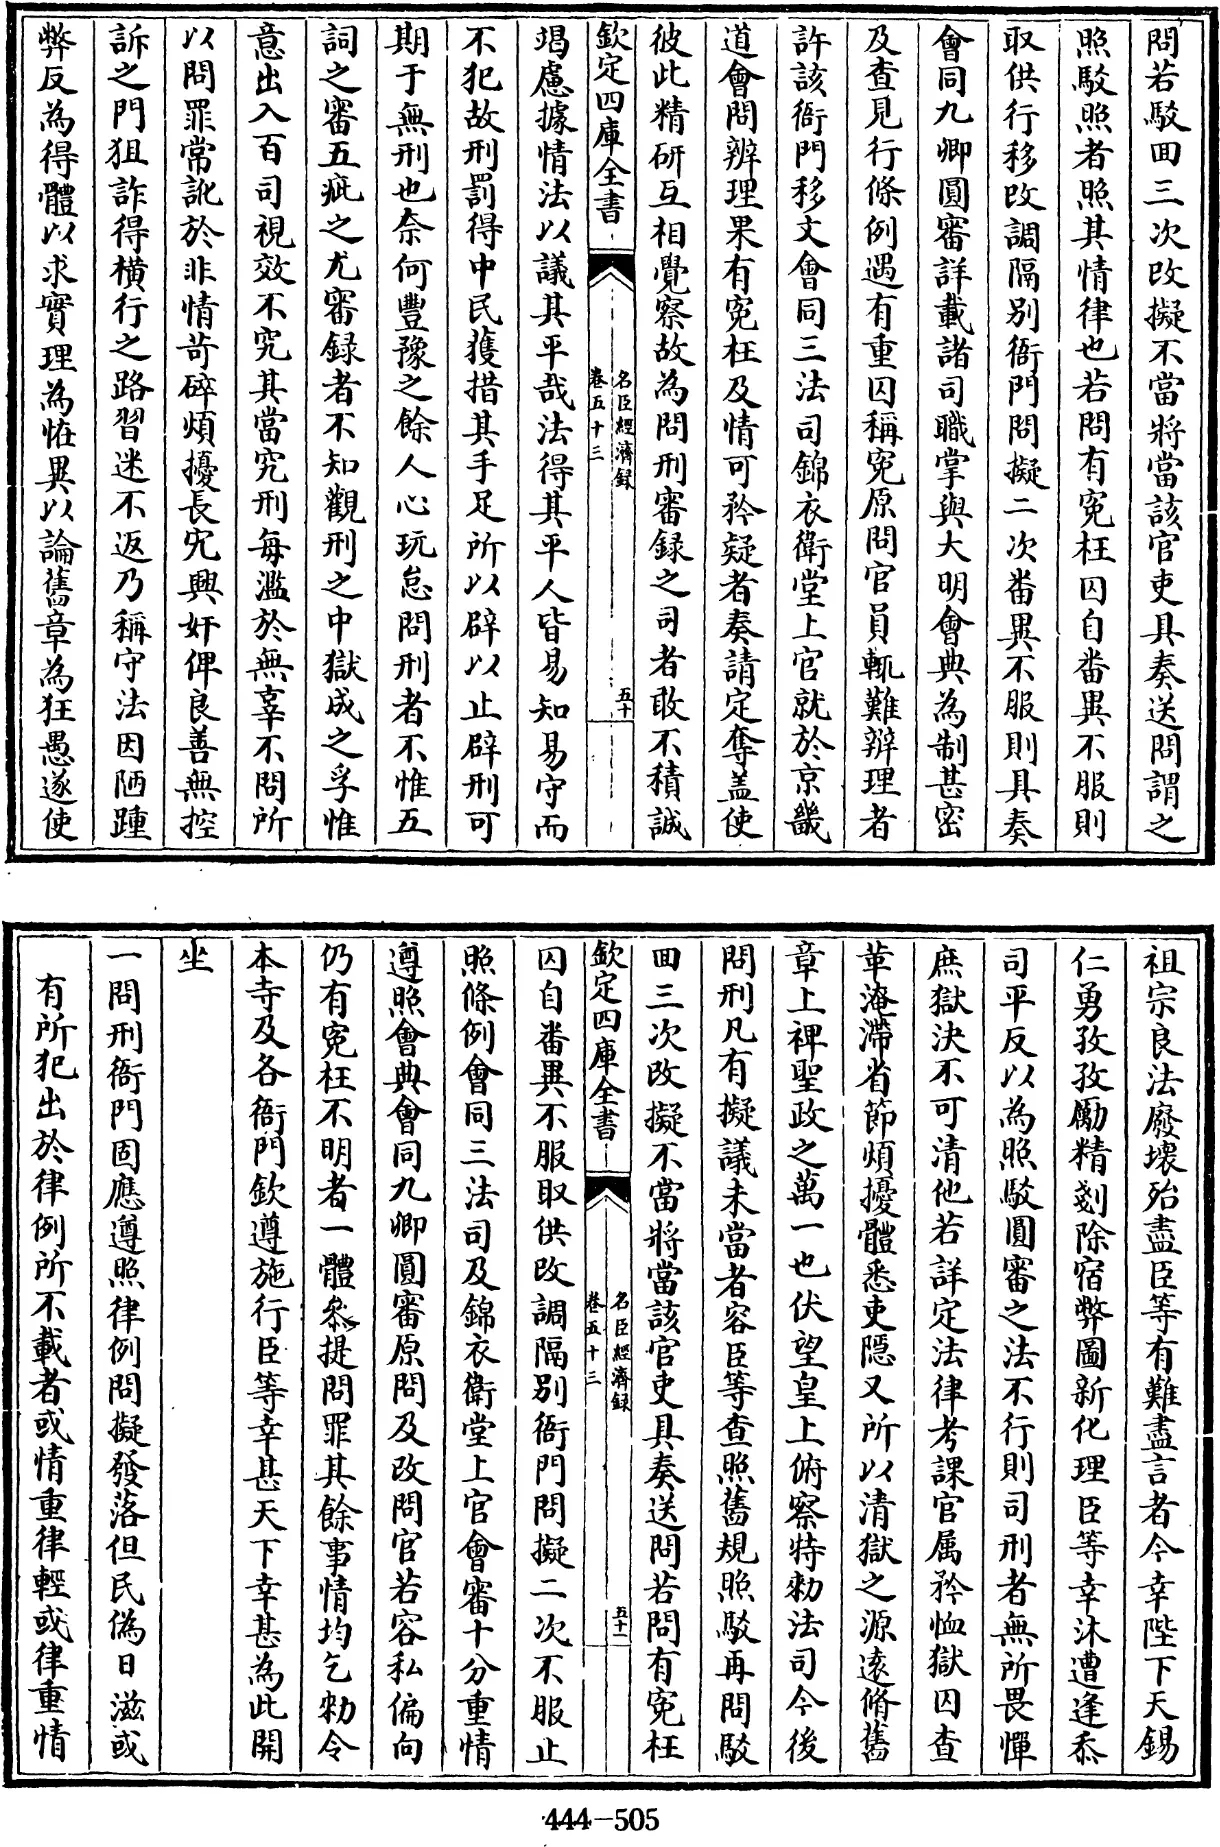 問若駁回三次改擬不當將當該官吏具奏送問謂之
照駁照者照其情律也若問有冤枉囚自畨異不服則
取供行移改調隔别衙門問擬二次畨異不服則具奏
會同九卿圓審詳載諸司職掌與大明會典為制甚密
及查見行條例遇有重囚稱冤原問官員輒難辨理者
許該衙門移文會同三法司錦衣衛堂上官就於京畿
道會問辨理果有冤枉及情可矜疑者奏請定奪盖使
彼此精研互相覺察故為問刑審録之司者敢不積誠
欽定四庫全書
名臣經濟録
卷五十三
五十
竭慮據情法以議其平哉法得其平人皆易知易守而
不犯故刑罰得中民獲措其手足所以辟以止辟刑可
期于無刑也奈何豐豫之餘人心玩怠問刑者不惟五
詞之審五疵之尤審録者不知觀刑之中獄成之孚惟
意出入百司視效不究其當究刑每濫於無辜不問所
以問罪常訛於非情苛碎煩擾長宄興奸俾良善無控
訴之門狙詐得横行之路習迷不返乃稱守法因陋踵
弊反為得體以求實理為恠異以論舊章為狂愚遂使
祖宗良法廢壊殆盡臣等有難盡言者今幸陛下天錫
仁勇孜孜勵精剗除宿弊圖新化理臣等幸沐遭逢忝
司平反以為照駁圓審之法不行則司刑者無所畏憚
庶獄決不可清他若詳定法律考課官属矜恤獄囚查
革淹滯省節煩擾體悉吏隱又所以清獄之源逺脩舊
章上禆聖政之萬一也伏望皇上俯察特勑法司今後
問刑凡有擬議未當者容臣等查照舊規照駁再問駁
回三次改擬不當將當該官吏具奏送問若問有冤枉
欽定四庫全書
名臣經濟録
卷五十三
五十一
囚自畨異不服取供改調隔别衙門問擬二次不服止
照條例會同三法司及錦衣衛堂上官會審十分重情
遵照會典會同九卿圓審原問及改問官若容私偏向
仍有冤枉不明者一體叅提問罪其餘事情均乞勑令
本寺及各衙門欽遵施行臣等幸甚天下幸甚為此開
坐
一問刑衙門固應遵照律例問擬發落但民偽日滋或
有所犯出於律例所不載者或情重律輕或律重情
444-505